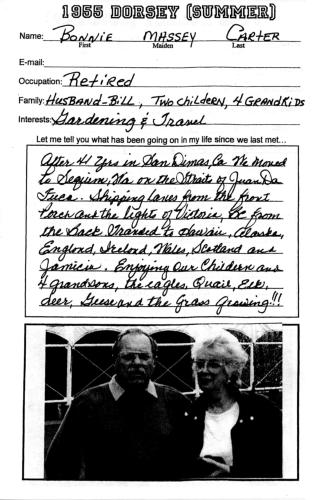 1955 DORSEY (SUMMER)
Name: BONNIE MASSEY CARTER
First Maiden Last
E-mail:
Occupation: Retired
Family: HUSBAND-BILL, TWO CHILDERN, 4 GRANDKIDS
Interests: Gardening & Travel
Let me tell you what has been going on in my life since we last met...
After 41 yrs in San Dimas, Ca We moved
to Sequim, Wa. on the Strait of Juan Da
Fuca. Shipping Lanes from the front
Porch and the lights of Victoria, BC from
the Back. Traveled to Hawaii, Alaska,
England, Ireland, Wales, Scotland and
Jamicia. Enjoying Our Childern and
4 grandsons, the eagles, Quail, Elk,
deer, Geese and the Grass growing!!!